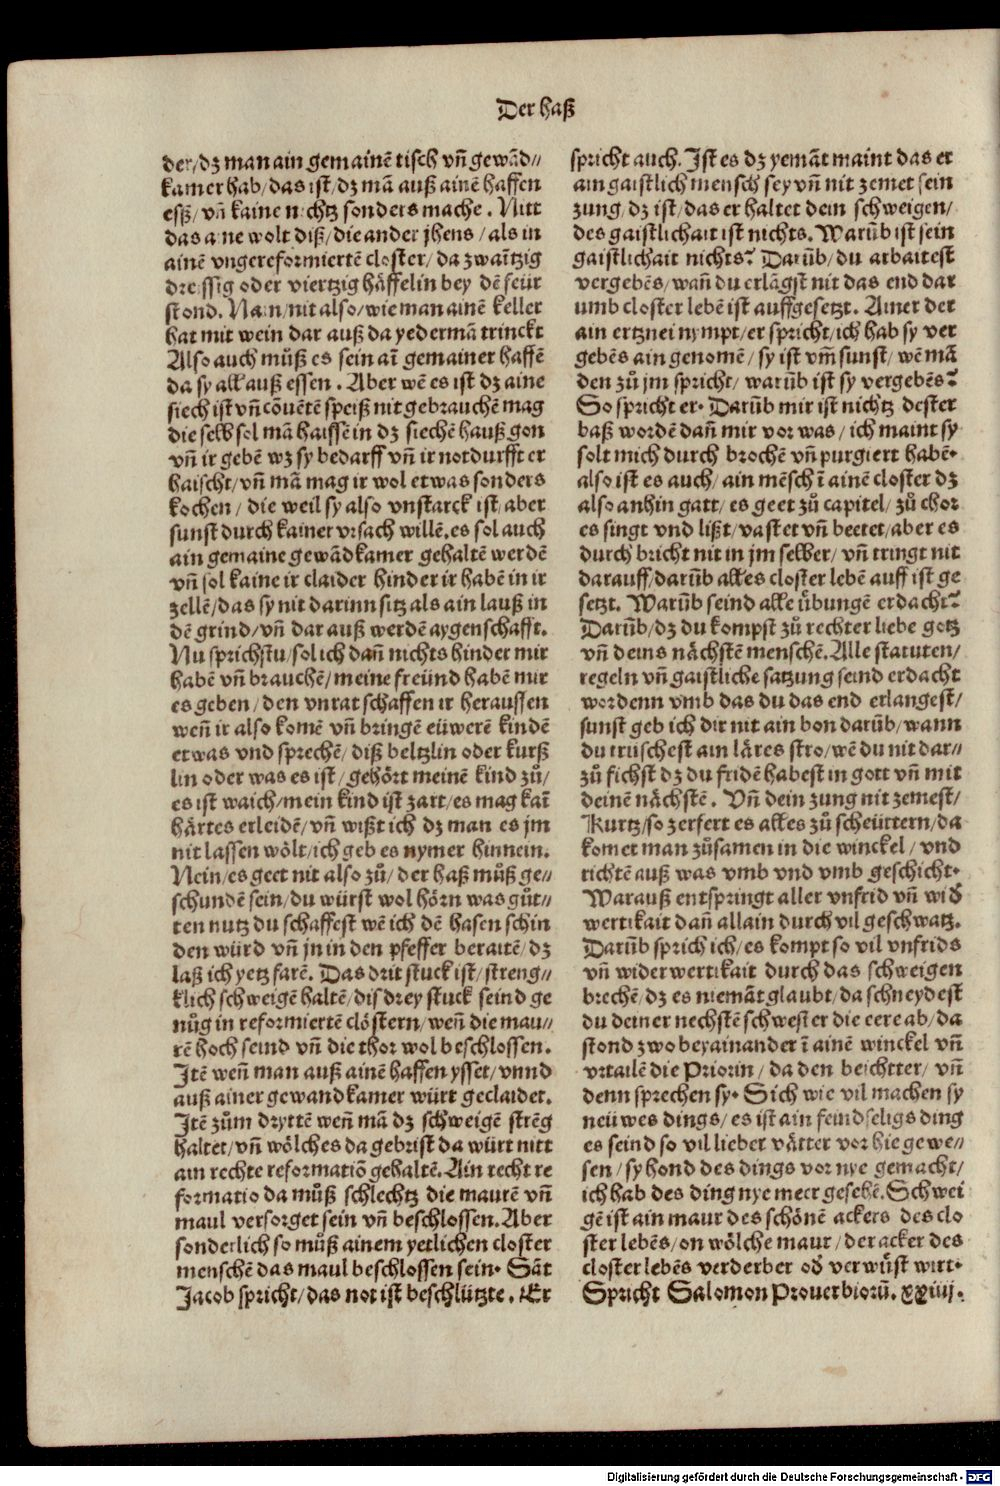 Der haß
der/dz man ain gemainē tisch vñ gewād//
kamer hab/das ist/dz mā auß ainē haffen
esß/vñ kaine nichtz sonders mache. Nitt
das aine wolt diß/die ander jhens/als in
ainē vngereformiertē closter/da zwaĩtzig
dreissig oder viertzig häffelin bey dē feür
stond. Nain/nit also/wie man ainē keller
hat mit wein dar auß da yedermā trinckt
Also auch můß es sein aĩ gemainer haffē
da sy all auß essen. Aber wē es ist dz aine
siech ist vñ cōuētē speiß nit gebrauchē mag
die selb sol mā haissē in dz siechē hauß gon
vñ ir gebē wz sy bedarff vñ ir notdurfft er
haischt/vñ mā mag ir wol etwas sonders
kochen/die weil sy also vnstarck ist/aber
sunst durch kainer vrsach willē.es sol auch
ain gemaine gewādkamer gehaltē werdē
vñ sol kaine ir claider hinder ir habē in ir
zellē/das sy nit darinn sitz als ain lauß in
dē grind/vñ dar auß werdē aygenschafft.
Nu sprichstu/sol ich dañ nichts hinder mir
habē vñ brauchē/meine freünd habē mir
es geben/den vnrat schaffen ir heraussen
weñ ir also komē vñ bringē eüwerē kindē
etwas vnd sprechē/diß beltzlin oder kurß
lin oder was es ist/gehört meinē kind zů/
es ist waich/mein kind ist zart/es mag kaĩ
härtes erleidē/vñ wißt ich dz man es jm
nit lassen wölt/ich geb es nymer hinnein.
Nein/es geet nit also zů/der haß můß ge//
schundē sein/du würst wol hörn was gůt//
ten nutz du schaffest wē ich dē hasen schin
den würd vñ jn in den pfeffer beraitē/dz
laß ich yetz farē. Das drit stuck ist/streng//
klich schweigē haltē/dis drey stuck seind ge
nůg in reformiertē clöstern/weñ die mau//
rē hoch seind vñ die thor wol beschlossen.
Itē weñ man auß ainē haffen ysset/vnnd
auß ainer gewandkamer würt geclaidet.
Itē zům dryttē weñ mā dz schweigē strēg
haltet/vñ wölches da gebrist da würt nitt
ain rechte reformatiō gehaltē. Ain recht re
formatio da můß schlechtz die maurē vñ
maul versorget sein vñ beschlossen. Aber
sonderlich so můß ainem yetlichen closter
menschē das maul beschlossen sein. Sāt
Jacob spricht/das not ist beschlützte. Er
spricht auch. Ist es dz yemāt maint das er
ain gaistlich mensch sey vñ nit zemet sein
zung/dz ist/das er haltet dein schweigen/
des gaistlichait ist nichts. Warūb ist sein
gaistlichait nichts? Darūb/du arbaitest
vergebēs/wañ du erlāgst nit das end dar
umb closter lebē ist auffgesetzt. Ainer der
ain ertznei nympt/er spricht/ich hab sy ver
gebēs ain genomē/sy ist vm̄ sunst/wē mā
den zů jm spricht/warūb ist sy vergebēs?
So spricht er. Darūb mir ist nichtz dester
baß wordē dañ mir vor was/ich maint sy
solt mich durch brochē vñ purgiert habē.
also ist es auch/ain mēsch ĩ ainē closter dz
also anhin gatt/es geet zů capitel/zů chor
es singt vnd lißt/vastet vñ beetet/aber es
durch bricht nit in jm selber/vñ tringt nit
darauff/darūb alles closter lebē auff ist ge
setzt. Warūb seind alle übungē erdacht?
Darūb/dz du kompst zů rechter liebe gotz
vñ deins nächstē menschē. Alle statuten/
regeln vñ gaistliche satzung seind erdacht
wordenn vmb das du das end erlangest/
sunst geb ich dir nit ain bon darūb/wann
du trüschest ain läres stro/wē du nit dar//
zů fichst dz du fridē habest in gott vñ mit
deinē nächstē. Vñ dein zung nit zemest/
Kurtz/so zerfert es alles zů scheüttern/da
komet man zůsamen in die winckel/vnd
richtē auß was vmb vnd vmb geschicht.
Warauß entspringt aller vnfrid vñ wid̄
wertikait dañ allain durch vil geschwatz.
Darūb sprich ich/es kompt so vil vnfrids
vñ widerwertikait durch das schweigen
brechē/dz es niemāt glaubt/da schneydest
du deiner nechstē schwester die eere ab/da
stond zwo beyainander ĩ ainē winckel vñ
vrtailē die Priorin/da den beichtter/vñ
denn sprechen sy. Sich wie vil machen sy
neüwes dings/es ist ain feindseligs ding
es seind so vil lieber vätter vor hie gewe//
sen/sy hond des dings vor nye gemacht/
ich hab des ding nye meer gesehē. Schwei
gē ist ain maur des schönē ackers des clo
ster lebēs/on wölche maur/der acker des
closter lebēs verderber od̄ verwüst wirt.
Spricht Salomon Prouerbiorū. xxiiij.
Digitalisierung gefördert durch die Deutsche Forschungsgemeinschaft - DFG